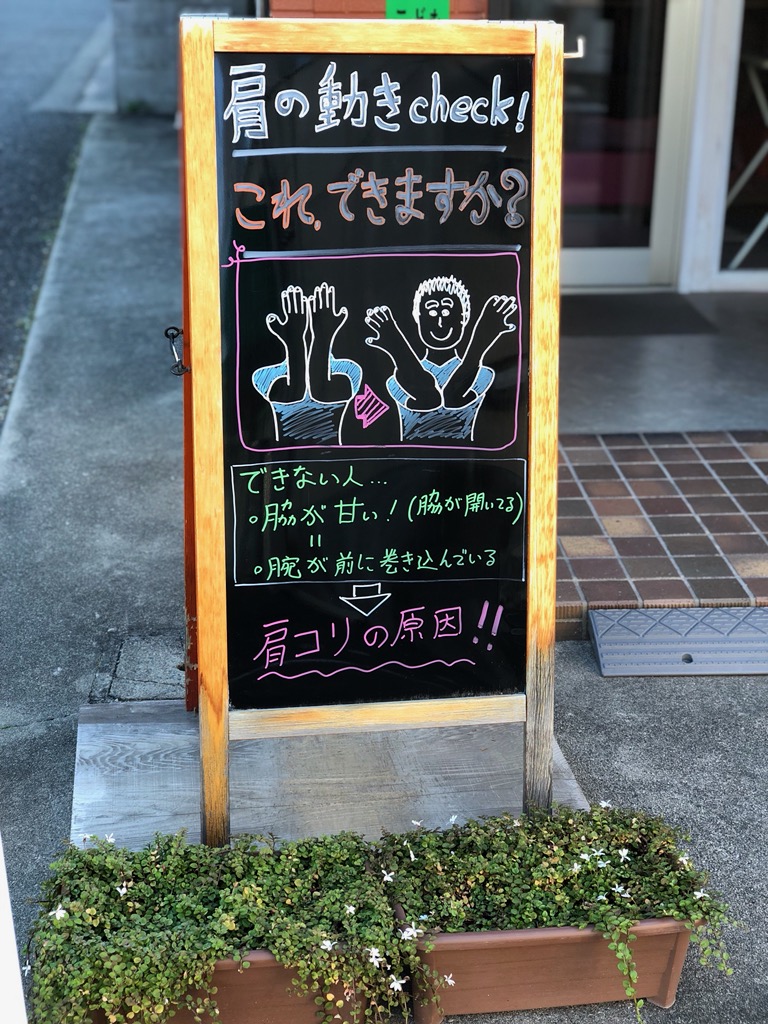 こども
肩の動きcheck!
これ、できますか?
できない人…
○脇が甘い!(脇が開いてる)
〃
○腕が前に巻き込んでいる
肩コリの原因!!